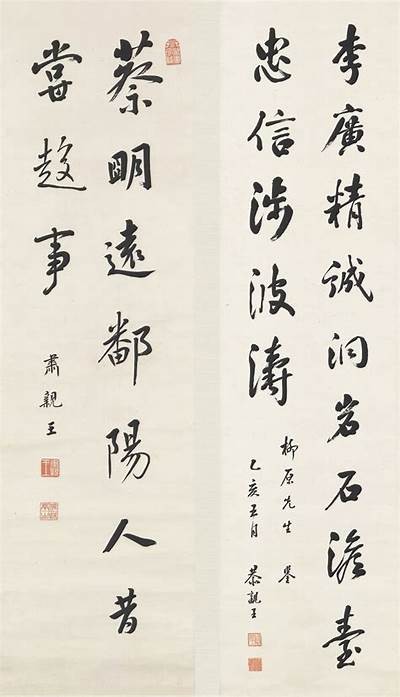 李廣精誠洞岩石澹臺
忠信涉波濤
柳原先生 鉴
乙亥五月 恭親王
蔡明遠鄱陽人昔
嘗趍事
肅親王